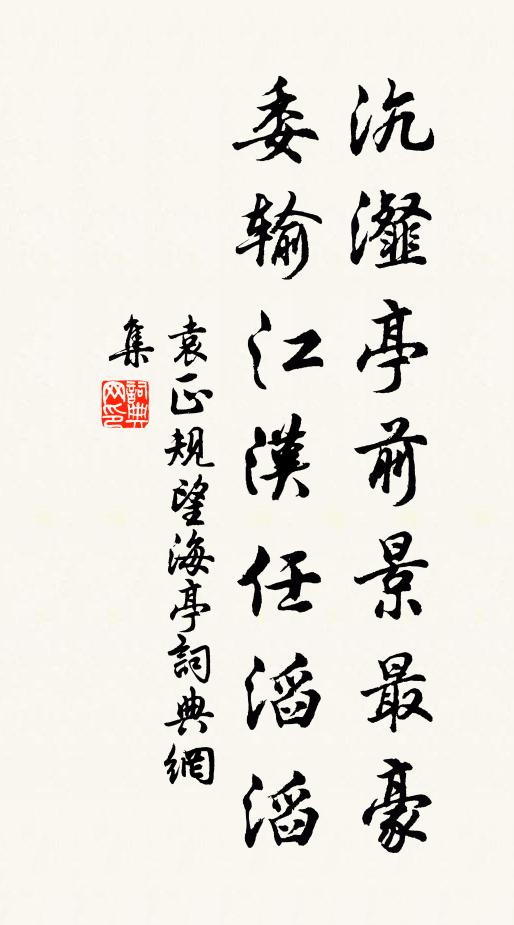 沆瀣亭前景最豪
委输江漢任滔滔
袁正规望海亭詞典網
集
詞典
网印